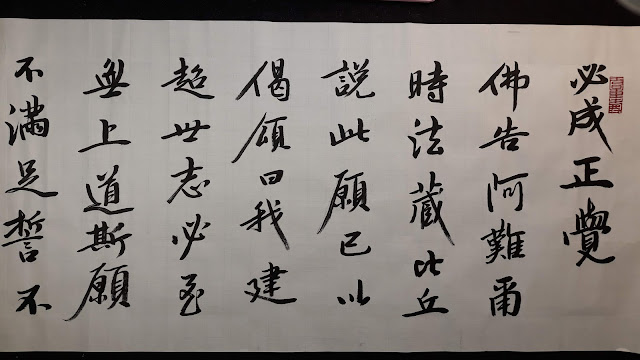 必成正覺
佛告阿難爾
時法藏比丘
說此願已以
偈頌曰我建
超世志必至
無上道斯願
不滿足誓不